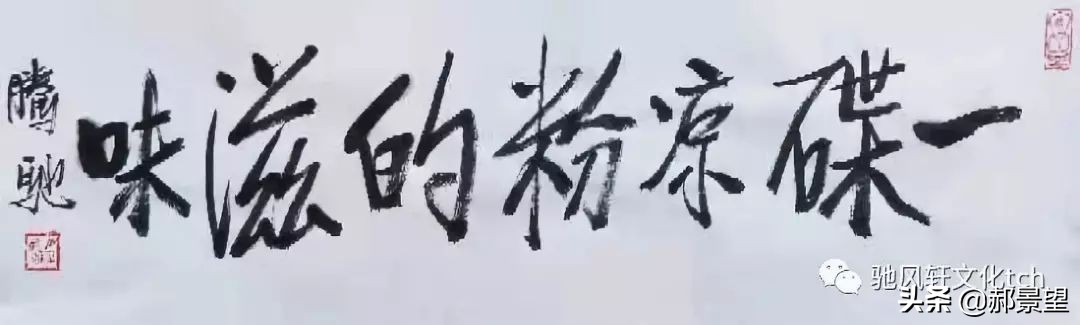 一碟凉粉的滋味
腾驰
驰风轩文化tch
头条 @郝景望